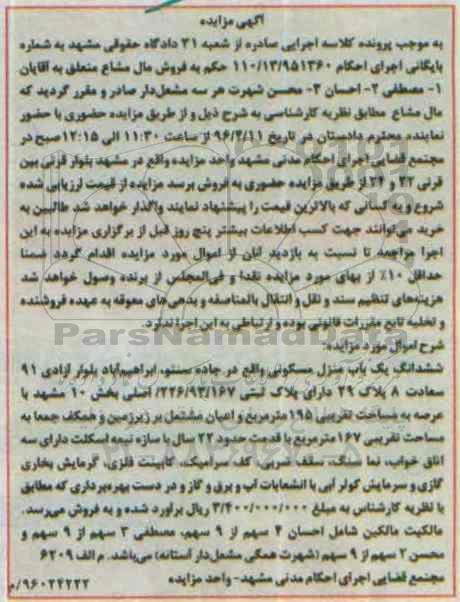 آگهی مزایده
به موجب پرونده کلاسه اجرایی صادره از شعبه ۳۱ دادگاه حقوقی مشهد به شماره
بایگانی اجرای احکام ۱۱۰/۱۳/۹۵۱۳۶۰ حکم به فروش مال مشاع متعلق به آقایان
۱- مصطفی ۲- احسان ۳- محسن شهرت هر سه مشعل‌دار صادر و مقرر گردید که
مال مشاع مطابق نظریه کارشناسی به شرح ذیل و از طریق مزایده حضوری با حضور
نماینده محترم دادستان در تاریخ ۹۶/۳/۱۱ از ساعت ۱۱:۳۰ الی ۱۲:۱۵ صبح در
مجتمع قضایی اجرای احکام مدنی مشهد واحد مزایده واقع در مشهد بلوار قرنی بین
قرنی ۲۲ و ۲۴ از طریق مزایده حضوری به فروش برسد مزایده از قیمت ارزیابی شده
شروع و به کسانی که بالاترین قیمت را پیشنهاد نمایند واگذار خواهد شد طالبین به
خرید می‌توانند جهت کسب اطلاعات بیشتر پنج روز قبل از برگزاری مزایده به این
اجرا مراجعه تا نسبت به بازدید آنان از اموال مورد مزایده اقدام گردد ضمنا
حداقل ۱۰٪ از بهای مورد مزایده نقدا و فی‌المجلس از برنده وصول خواهد شد
هزینه‌های تنظیم سند و نقل و انتقال بالمناصفه و بدهی‌های معوقه به عهده فروشنده
و تخلیه تابع مقررات قانونی بوده و ارتباطی به این اجرا ندارد.
ParsNamadData
شرح اموال مورد مزایده:
ششدانگ یک باب منزل مسکونی واقع در جاده سنتو، ابراهیم‌آباد بلوار آزادی ۹۱
سعادت ۸ پلاک ۲۹ دارای پلاک ثبتی ۲۲۶/۹۳/۱۶۷ اصلی بخش ۱۰ مشهد با
عرصه به مساحت تقریبی ۱۹۵ مترمربع و اعیان مشتمل بر زیرزمین و همکف جمعا به
مساحت تقریبی ۱۶۷ مترمربع با قدمت حدود ۲۲ سال با سازه نیمه اسکلت دارای سه
اتاق خواب، نما سنگ، سقف ضربی، کف سرامیک، کابینت فلزی، گرمایش بخاری
گازی و سرمایش کولر آبی با انشعابات آب و برق و گاز و در دست بهره‌برداری که مطابق
با نظریه کارشناس به مبلغ ۳/۴۰۰/۰۰۰/۰۰۰ ریال برآورد شده و به فروش می‌رسد.
مالکیت مالکین شامل احسان ۴ سهم از ۹ سهم، مصطفی ۳ سهم از ۹ سهم و
محسن ۲ سهم از ۹ سهم (شهرت همگی مشعل‌دار آستانه) می‌باشد. م الف ۶۲۰۹
مجتمع قضایی اجرای احکام مدنی مشهد- واحد مزایده
۹۶۰۲۴۲۲۲/م